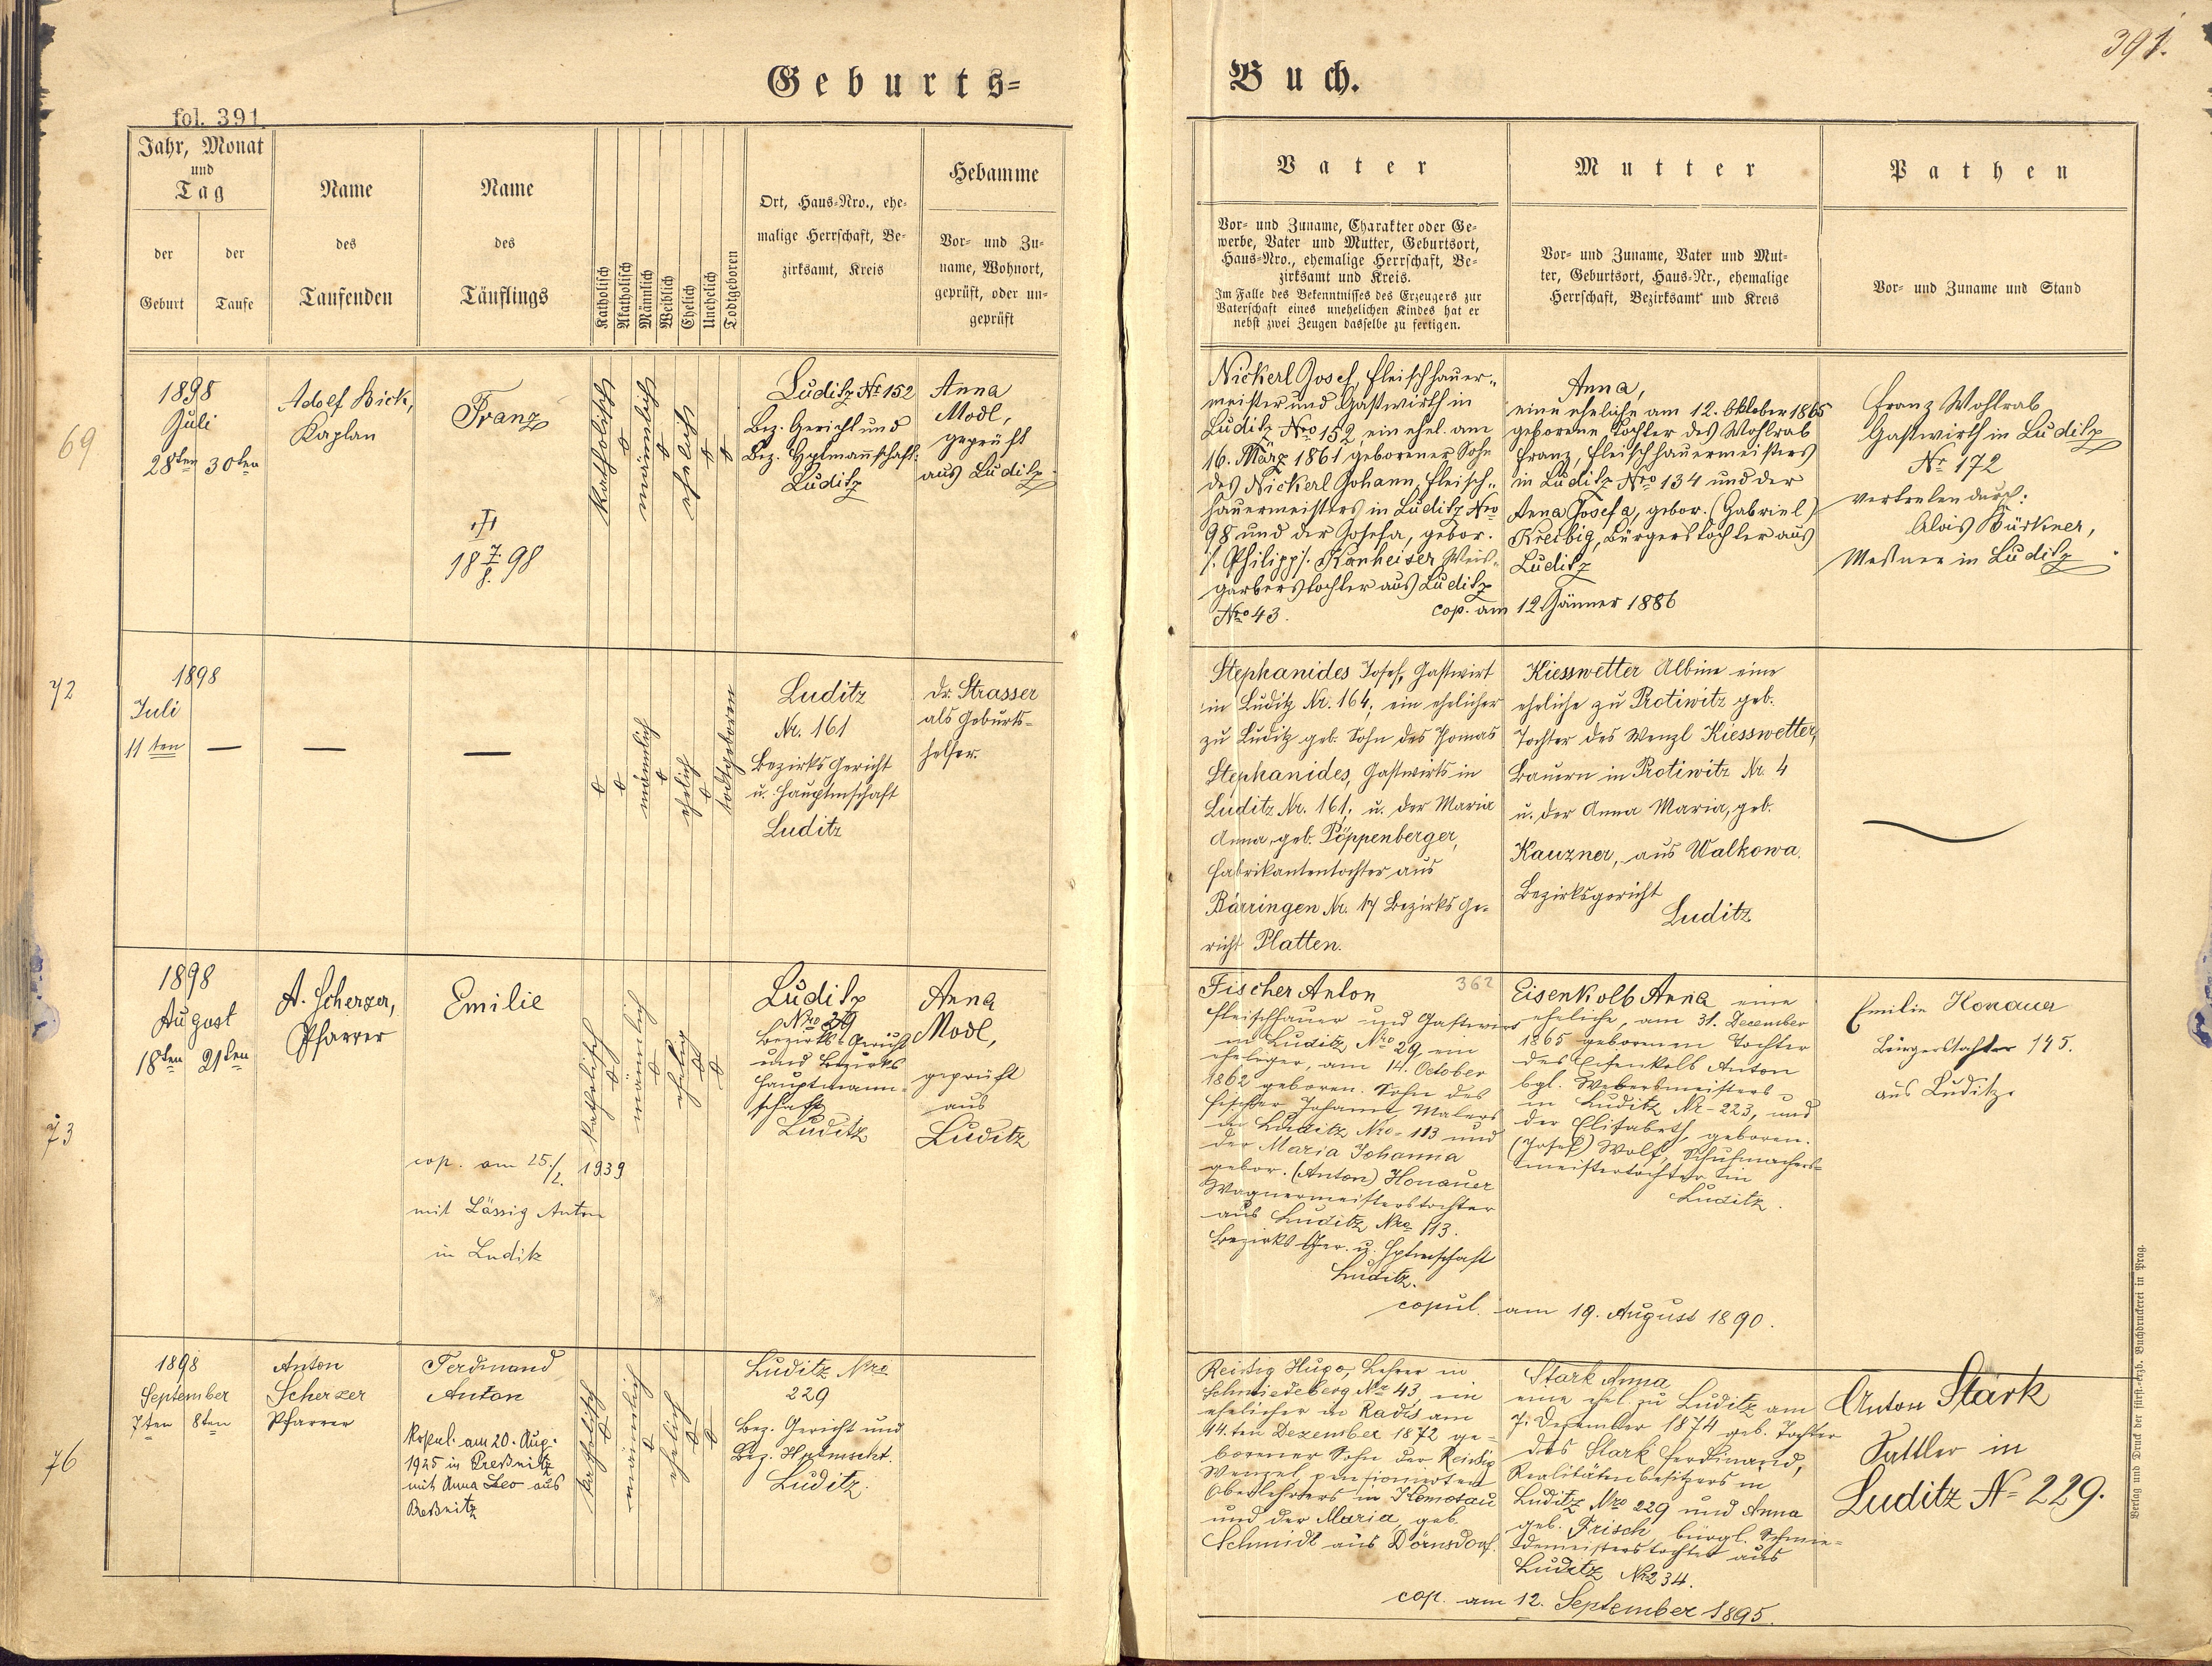 391.
Geburts=
Buch.
fol. 391
Jahr, Monat
und
Tag
der
Geburt
der
Taufe
Name
des
Taufenden
Name
des
Täuflings
Katholisch
Akatholisch
Männlich
Weiblich
Ehelich
Unehelich
Todtgeboren
Ort, Haus=Nro., ehe=
malige Herrschaft, Be=
zirksamt, Kreis
Hebamme
Vor= und Zu=
name, Wohnort,
geprüft, oder un=
geprüft
Vater
Vor= und Zuname, Charakter oder Ge=
werbe, Vater und Mutter, Geburtsort,
Haus=Nro., ehemalige Herrschaft, Be=
zirksamt und Kreis.
Im Falle des Bekenntnisses des Erzeugers zur
Vaterschaft eines unehelichen Kindes hat er
nebst zwei Zeugen dasselbe zu fertigen.
Mutter
Vor= und Zuname, Vater und Mut=
ter, Geburtsort, Haus=Nr., ehemalige
Herrschaft, Bezirksamt und Kreis
Pathen
Vor= und Zuname und Stand
69
1898
Juli
28ten 30ten
Adolf Bick,
Kaplan
Franz
18 7/8. 98
katholisch
männlich
ehelich
Luditz No 152
Bez. Gericht und
Bez. Hptmannschaft:
Luditz
Anna
Modl,
geprüft
aus Luditz.
Nickerl Josef, Fleischhauer„
meister und Gastwirth in
Luditz Nro 152, ein ehel. am
16. März 1861 geborener Sohn
des Nickerl Johann, Fleisch„
hauermeisters in Luditz Nro
98 und der Josefa, gebor.
/: Philipp /: Konheiser Weis„
garberstochter aus Luditz
Nro 43.
Anna,
eine eheliche am 12. Oktober 1865
geborene Tochter des Wohlrab
Franz, Fleischhauermeisters
in Luditz Nro 134 und der
Anna Josefa, gebor. (Gabriel)
Kreibig, Bürgerstochter aus
Luditz
cop. am 12. Jänner 1886
Franz Wohlrab
Gastwirth in Luditz
Nr 172
vertreten durch:
Alois Bürkner,
Messner in Luditz.
72
1898
Juli
11 ten — — —
männlich
ehelich
todtgeboren
Luditz
Nr. 161
Bezirks Gericht
u. Hauptmschaft
Luditz
Dr. Strasser
als Geburts=
helfer.
Stephanides Josef, Gastwirt
in Luditz Nr. 164; ein ehelicher
zu Luditz geb. Sohn des Thomas
Stephanides, Gastwirts in
Luditz Nr. 161; u. der Maria
Anna, geb. Pöppenberger,
Fabrikantentochter aus
Bärringen Nr. 17 Bezirks Ge=
richt Platten.
Kiesswetter Albine eine
eheliche zu Protiwitz geb.
Tochter des Wenzl Kiesswetter,
Bauern in Protiwitz Nr. 4
u. der Anna Maria, geb.
Kauzner, aus Walkowa.
Bezirksgericht
Luditz
73
1898
August
18ten 21ten
A. Scherzer,
Pfarrer
Emilie
cop. am 25./2. 1939
mit Lässig Anton
in Luditz
katholisch
männlich
ehelich
Luditz
Nro 29
Bezirks Gericht
und Bezirks
Hauptmann=
schaft
Luditz
Anna
Modl,
geprüft
aus
Luditz
362
Fischer Anton
Fleischhauer und Gastwirt
in Luditz Nro 29, ein
ehelicher, am 14. October
1862 geboren. Sohn des
Fischer Johann, Malers
in Luditz Nro 113 und
der Maria Johanna
gebor. (Anton) Honauer
Wagnermeisterstochter
aus Luditz Nro 113.
Bezirks Ger. u. Hptmschaft
Luditz.
Eisenkolb Anna eine
eheliche, am 31. December
1865 geborenen Tochter
des Eisenkolb Anton
bgl. Webermeisters
in Luditz Nr- 223, und
der Elisabeth, geboren.
(Josef) Wolf, Schuhmacher=
meisterstochter in
Luditz.
copul. am 19. August 1890.
Emilie Honauer
Bürgerstochter 145.
aus Luditz.
76
1898
September
7ten 8ten
Anton
Scherzer
Pfarrer
Ferdinand
Anton
Kopul. am 20. Aug.
1925 in Preßnitz
mit Anna Leo aus
Preßnitz
katholisch
männlich
ehelich
Luditz Nro
229
Bez. Gericht und
Bez. Hptmscht.
Luditz.
Reissig Hugo, Lehrer in
Schmiedeberg Nr 43, ein
ehelicher in Radis am
14.ten Dezember 1872 ge=
borener Sohn des Reissig
Wenzel, pensionierten
Oberlehrers in Komotau
und der Maria geb.
Schmidt aus Dörnsdorf.
Stark Anna
eine ehel. zu Luditz am
7. Dezember 1874 geb. Tochter
des Stark Ferdinand,
Realitätenbesitzers in
Luditz Nro 229 und Anna
geb. Frisch, bürgl. Schmie=
demeisterstochter aus
Luditz Nr 234.
cop. am 12. September 1895.
Anton Stark
Sattler in
Luditz No 229.
Verlag und Druck der fürst-erzb. Buchdruckerei in Prag.